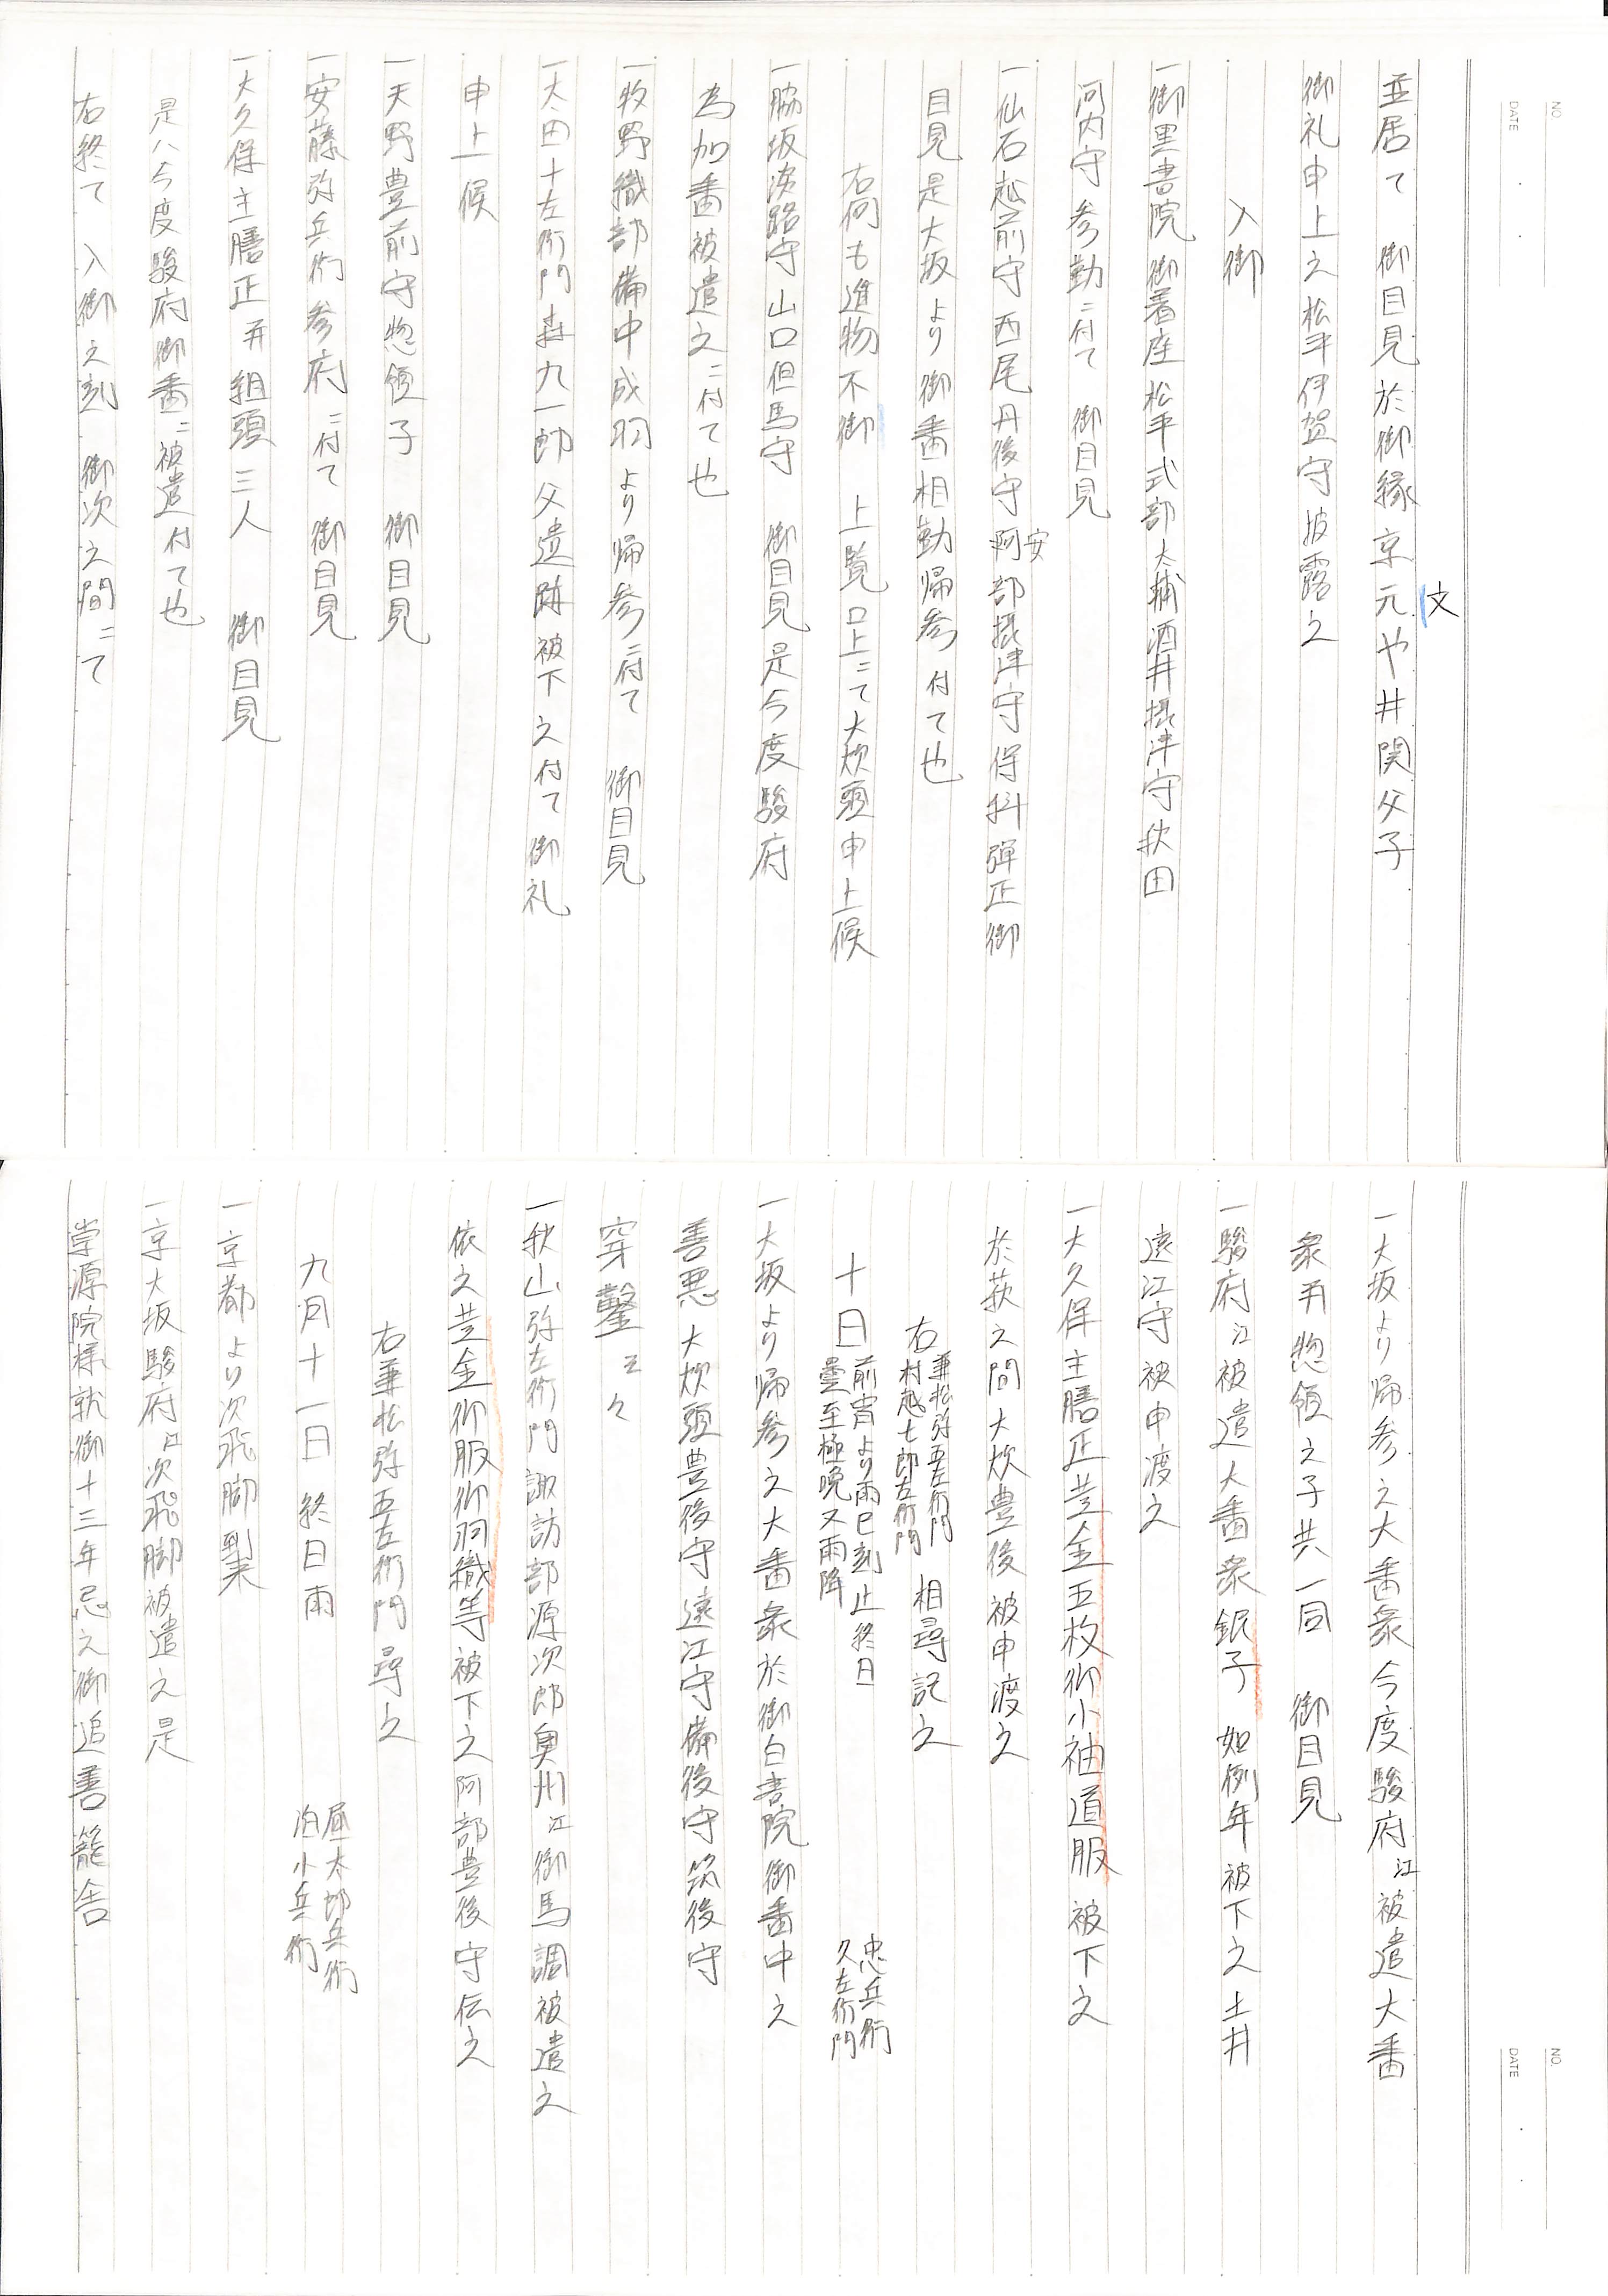 NO.
DATE
並居て 御目見於御縁京元や井関父子
文
御礼申上之松平伊賀守披露之
入御
一御黒書院 御着座 松平式部大輔 酒井摂津守 秋田
河内守 参勤ニ付て 御目見
一仙石越前守 西尾丹後守 阿部摂津守 保科弾正 御
安
目見 是大坂より 御番相勤帰参 付て也
右何も進物不御 上覧 口上ニて大炊頭申上候
一脇坂淡路守 山口但馬守 御目見 是今度駿府
為加番被遣之ニ付て也
一牧野織部備中成羽より帰参ニ付て 御目見
一太田十左衛門 森九一郎 父遺跡被下之付て御礼
申上候
一天野豊前守惣領子 御目見
一安藤弥兵衛参府ニ付て 御目見
一大久保主膳正并組頭三人 御目見
是ハ今度駿府御番ニ被遣付て也
右終て 入御之刻 御次之間ニて
NO.
DATE
一大坂より帰参之大番衆 今度駿府江被遣大番
衆并惣領之子共一同 御目見
一駿府江被遣大番衆 銀子 如例年被下之 土井
遠江守被申渡之
一大久保主膳正 芝金五枚御小袖道服 被下之
於萩之間 大炊豊後 被申渡之
右 兼松弥五左衛門 村越七郎左衛門 相尋記之
十日 前宵より雨巳刻止終日 曇至極晩又雨降 忠兵衛 久左衛門
一大坂より帰参之大番衆於御白書院 御番中之
善悪 大炊頭豊後守遠江守備後守筑後守
穿鑿云々
一秋山弥左衛門 諏訪部源次郎 奥州江御馬調被遣之
依之芝金御服御羽織等被下之 阿部豊後守伝之
右兼松弥五左衛門尋之
九月十一日 終日雨 昼太郎兵衛 泊小兵衛
一京都より次飛脚到来
一京大坂駿府江次飛脚被遣之 是
崇源院様就御十三年忌之御追善籠舎